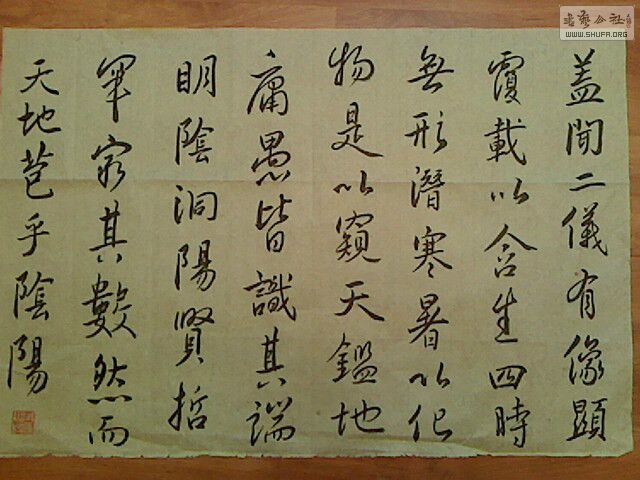 盖聞二儀有像顯
覆載以含生四時
無形潛寒暑以化
物是以窺天鑑地
庸愚皆識其端
明陰洞陽賢哲
罕窮其數然而
天地苞乎陰陽
書藝公社
WWW.SHUFA.ORG